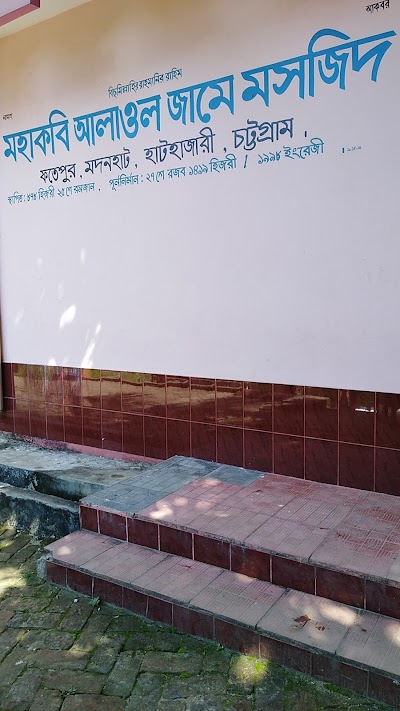 আকবর
বিছমিল্লাহির রাহমানির রাহিম
মহাকবি আলাওল জামে মসজিদ
ফতেপুর, মদনহাট, হাটহাজারী, চট্টগ্রাম।
স্থাপিত: ৮৭৮ হিজরী ২৫ শে রমজান, পুনর্নির্মান: ২৭ শে রজব ১৪১৯ হিজরী / ১৯৯৮ ইংরেজী।